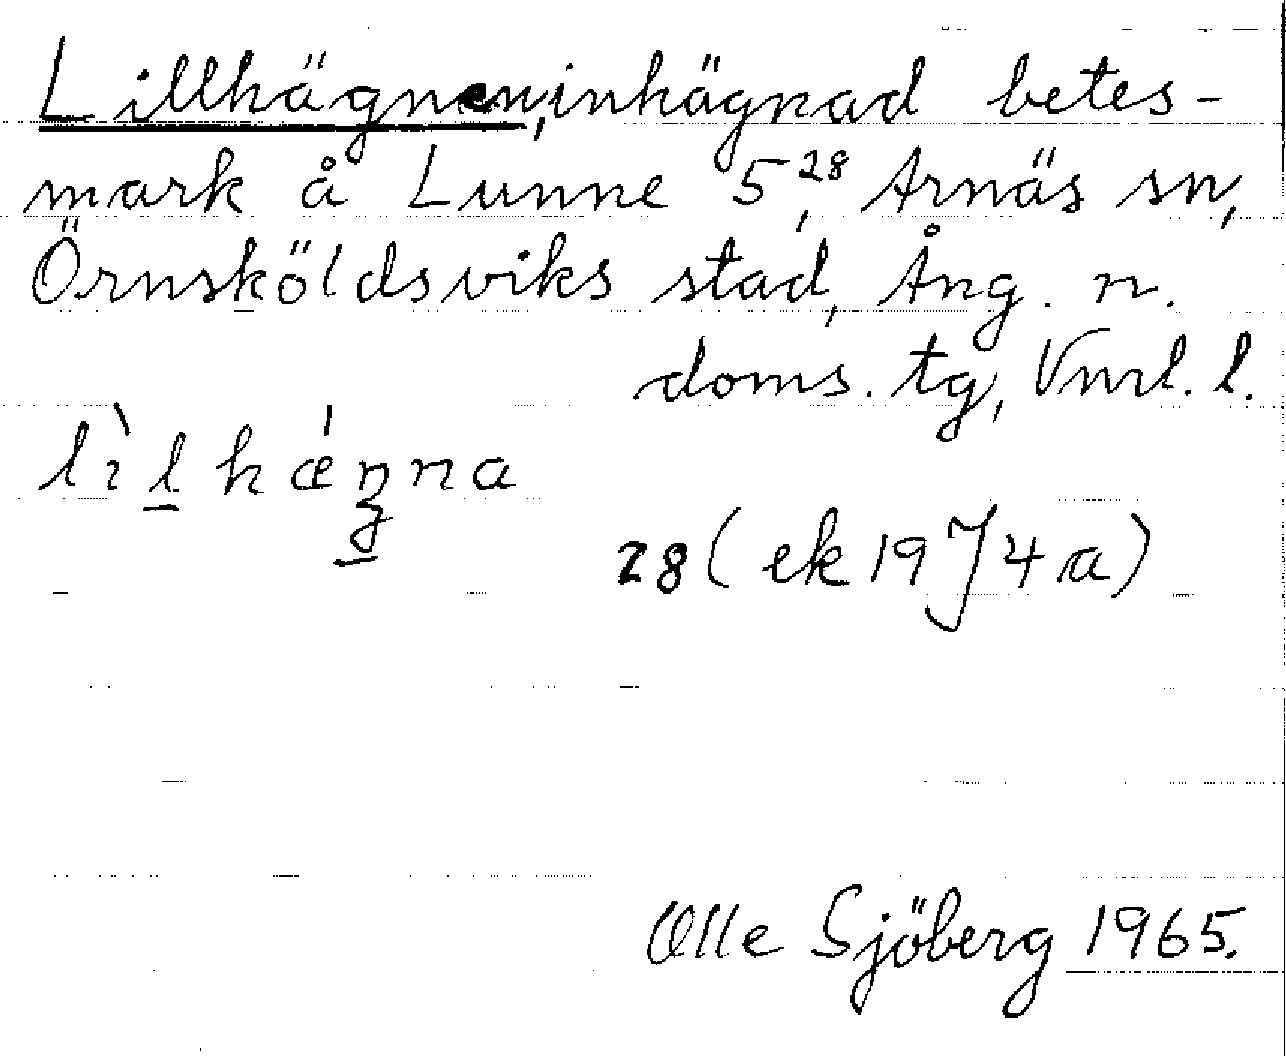 Lillhägnen, inhägnad betes-
mark å Lunne 5,28 Arnäs sn,
Örnsköldsviks stad, Ång. n.
doms. tg, Vnrl. l.
lìlhǽŋna
28 (ek 19J4a)
Olle Sjöberg 1965.